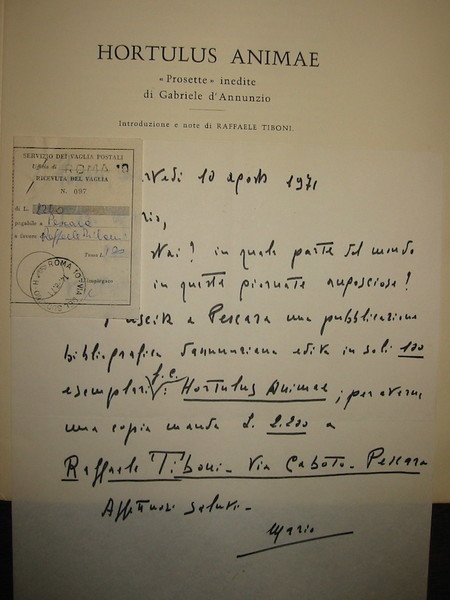 HORTULUS ANIMAE
«Prosette» inedite
di Gabriele d'Annunzio
Introduzione e note di RAFFAELE TIBONI.
SERVIZIO DEI VAGLIA POSTALI
Ufficio di ROMA 10
RICEVUTA DEL VAGLIA
N. 097
di L.
pagabile a Pescara
a favore Raffaele Tiboni
Tassa L. 120
L'impiegato
ROMA
10 agosto 1971
stai? in quale parte del mondo
in queste giornate
uscita a Pescara una pubblicazione
bibliografica dannunziana edita in soli 100
esemplari f.c.: Hortulus Animae; per averne
una copia manda L. 2.200 a
Raffaele Tiboni - Via Caboto - Pescara
Affettuosi saluti -
Mario